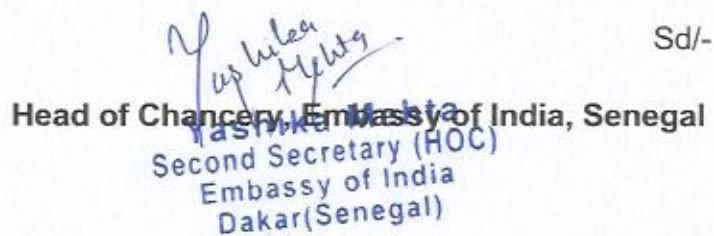 Sd/-
Yashika
Mehta
Head of Chancery, Embassy of India, Senegal
Yashika Mehta
Second Secretary (HOC)
Embassy of India
Dakar(Senegal)